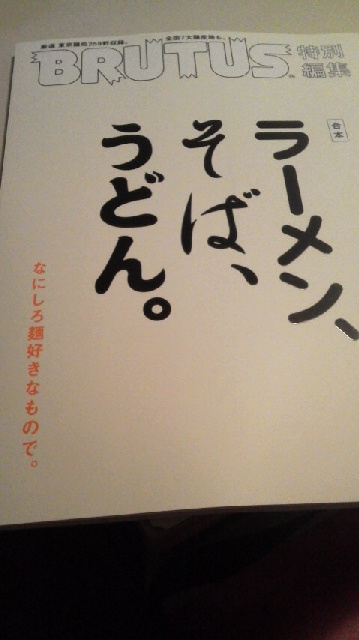 BRUTUS
特別
編集
合本
ラーメン、
そば、
うどん。
なにしろ麺好きなもので。